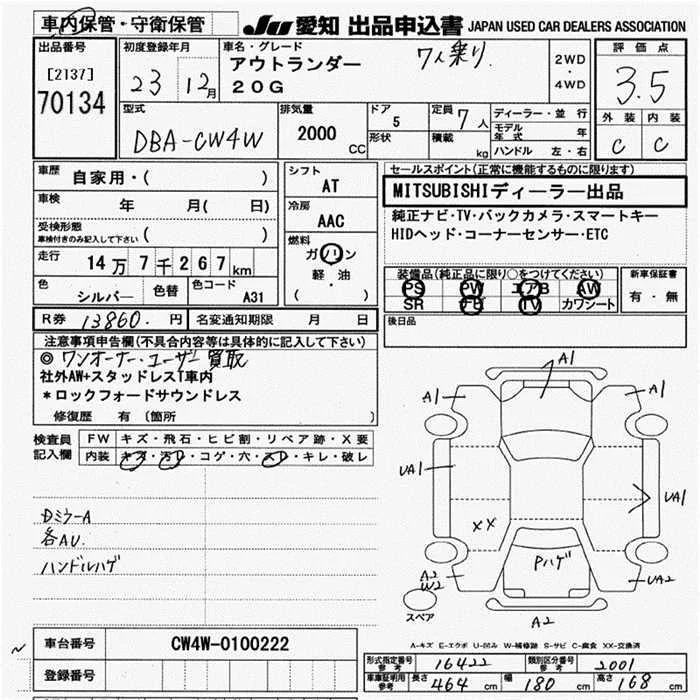 車内保管・守衛保管 JU 愛知 出品申込書 JAPAN USED CAR DEALERS ASSOCIATION
出品番号 [2137] 70134
初度登録年月 23 12月
車名・グレード アウトランダー 20G 7人乗り
2WD・4WD
評価点 3.5
外装 内装
C C
型式 DBA-CW4W
排気量 2000 CC
ドア 5
形状
定員 7人
積載 kg
ディーラー・並行
モデル年式 年
ハンドル 左・右
車歴 自家用・( )
車検 年 月( 日)
受検形態
車検付きのみ記入して下さい ( )
走行 14万7千267km
色 シルバー 色替
色コード A31
シフト AT
冷房 AAC
燃料 ガソリン
軽・油
( )
セールスポイント(正常に機能するものに限ります)
MITSUBISHIディーラー出品
純正ナビ・TV・バックカメラ・スマートキー
HIDヘッド・コーナーセンサー・ETC
装備品(純正品に限り○をつけてください)
PS PW エアB AW
SR ナビ TV カワシート
新車保証書
有・無
後日品
R券 13860. 円 名変通知期限 月 日
注意事項申告欄(不具合内容等は具体的に記入して下さい)
◎ワンオーナー・ユーザー買取
社外AW+スタッドレスT車内
*ロックフォードサウンドレス
修復歴 有 〔箇所 〕
検査員記入欄
FW キズ・飛石・ヒビ割・リペア跡・X要
内装 キズ・汚レ・コゲ・穴・スレ・キレ・破レ
Dミラ-A
各AU.
ハンドルハゲ
A1
A1
A1
UA1
UA1
XX
Pハゲ
A2
W2
UA2
A2
スペア
A-キズ E-エクボ U-凹み W-補修跡 S-サビ C-腐食 XX-交換済
車台番号 CW4W-0100222
登録番号
型式指定番号 参考 16422 類別区分番号 参考 2001
車庫証明用 参考 長さ 464 cm 幅 180 cm 高さ 168 cm